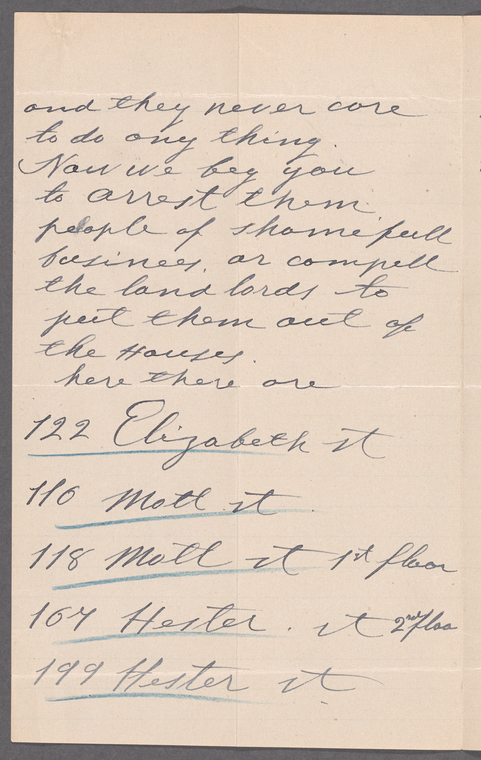 and they never care
to do any thing.
Now we beg you
to arrest them
people of shamefull
businees. or compell
the land lords to
put them out of
the Houses.
here there are
122 Elizabeth st
116 Mott st.
118 Mott st 1st floor
167 Hester. st 2nd floo
199 Hester st.